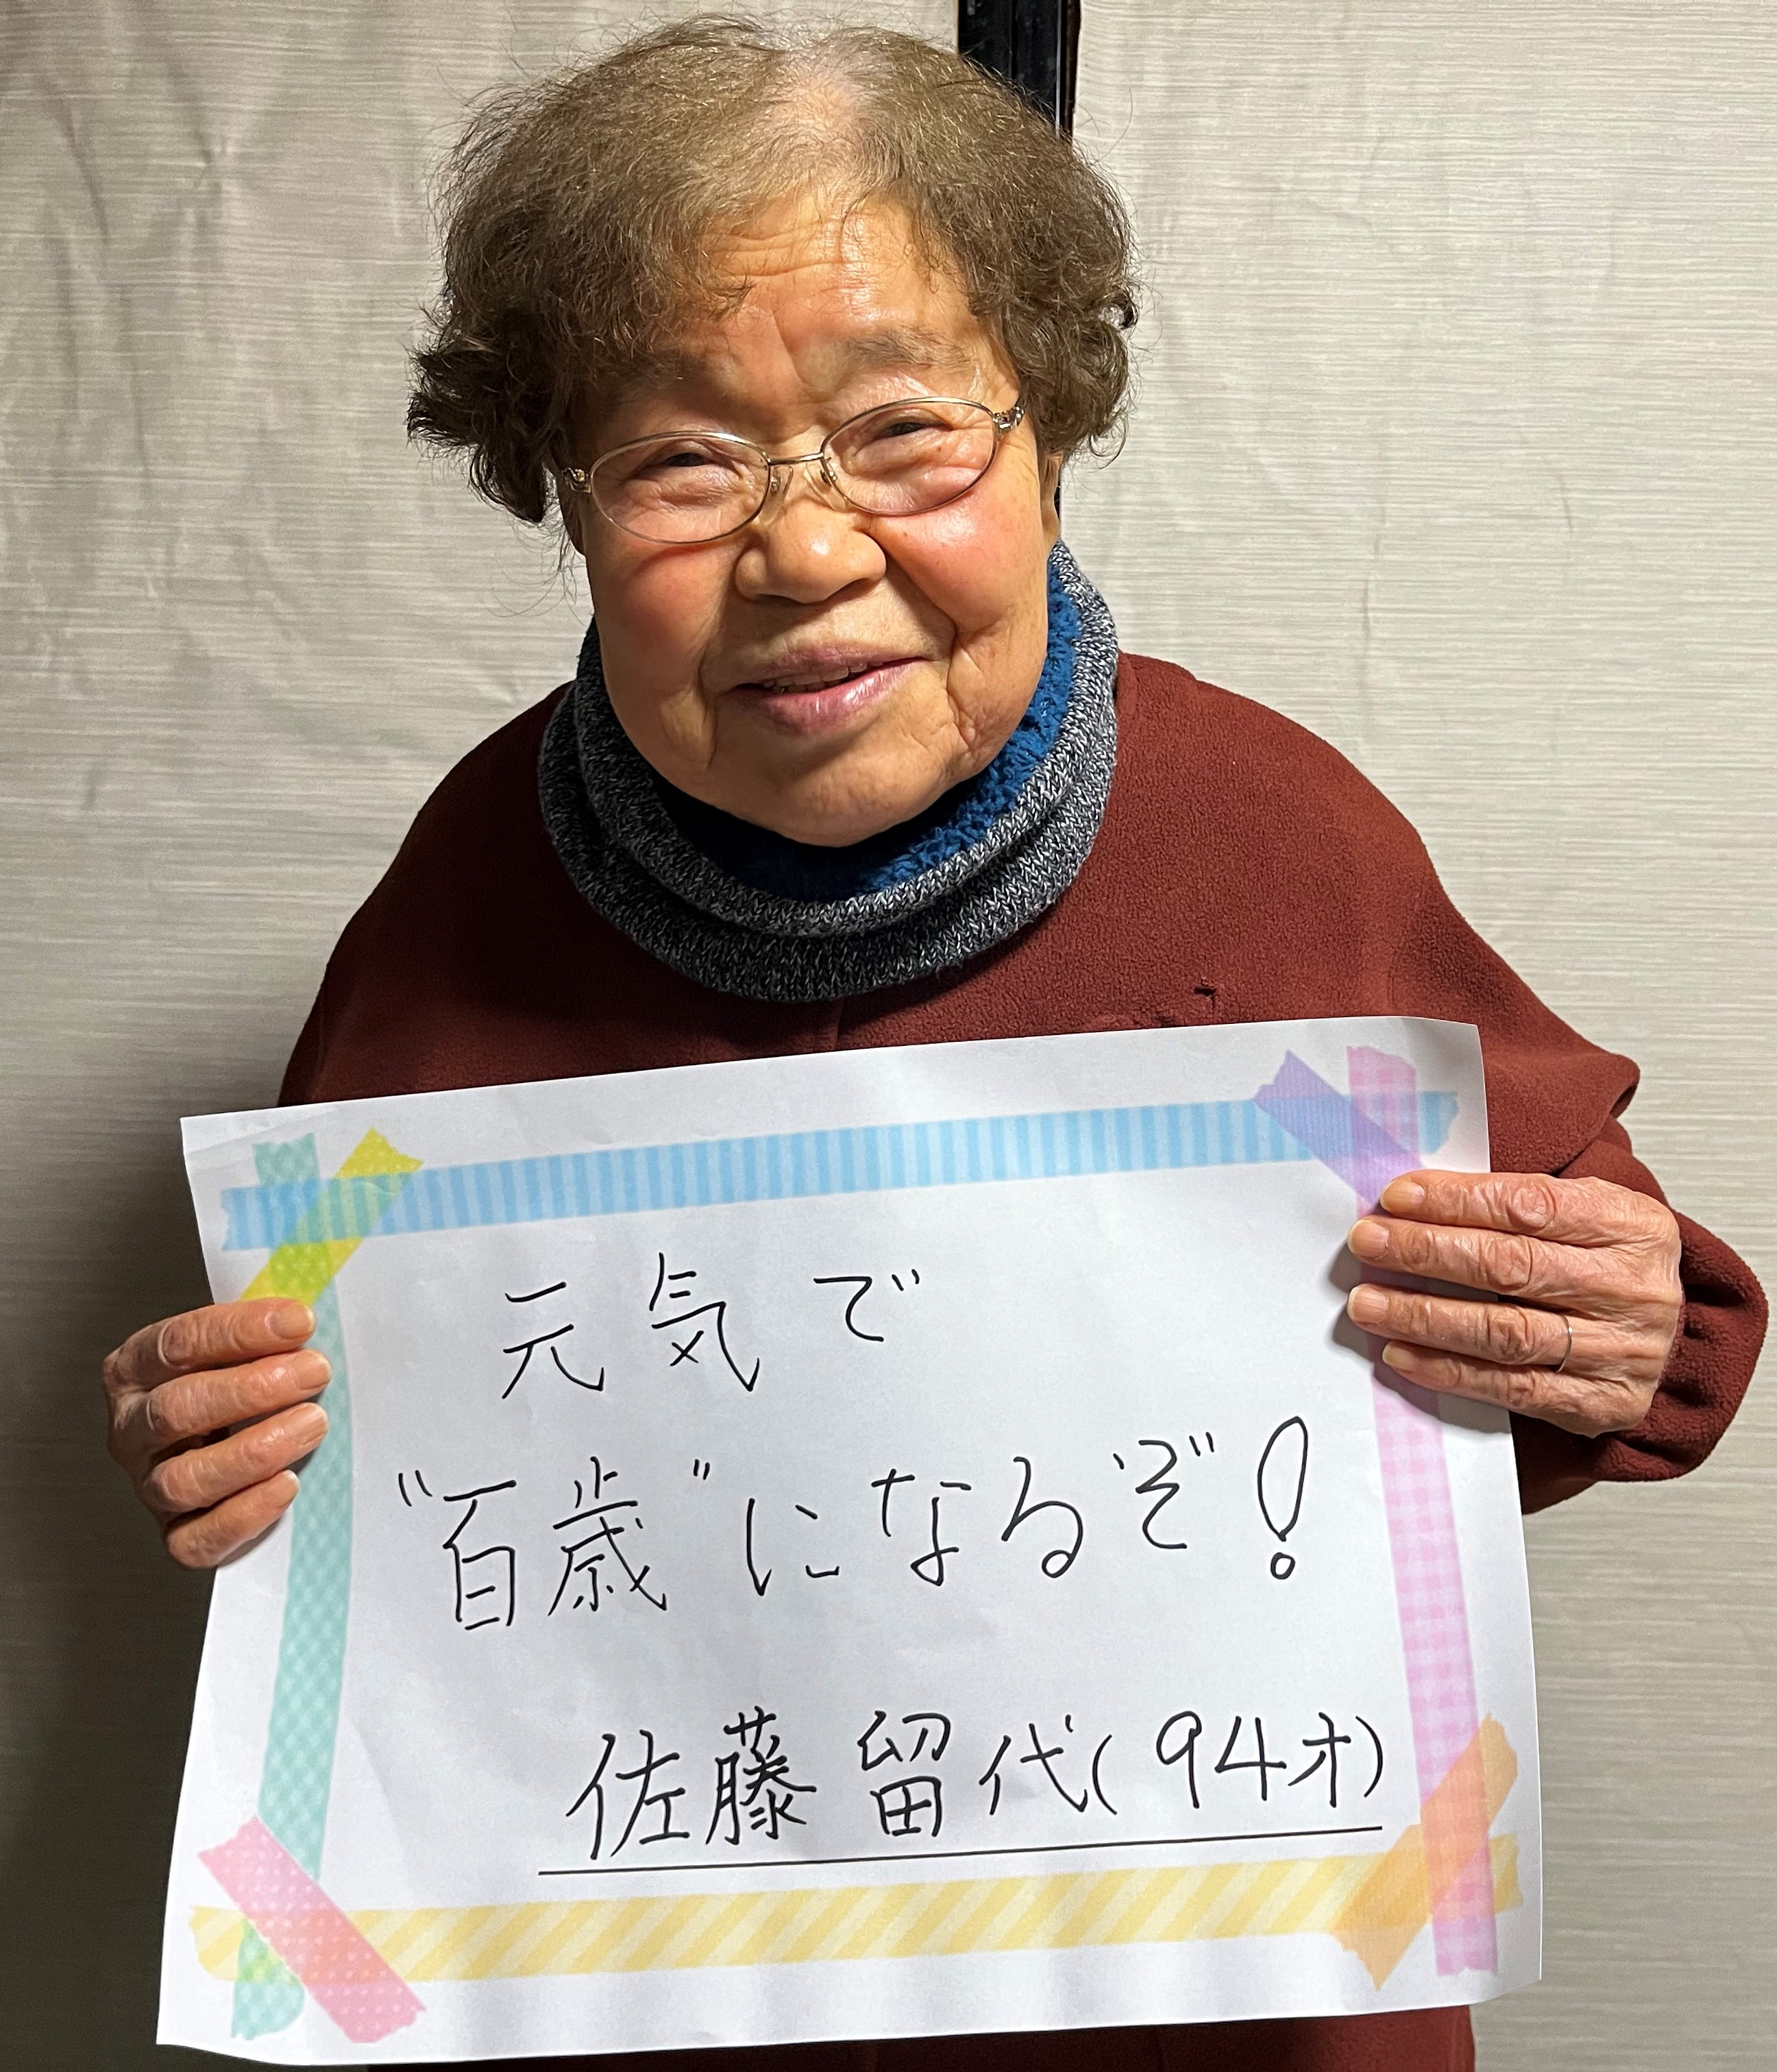 元気で
"百歳"になるぞ!
佐藤留代(94才)